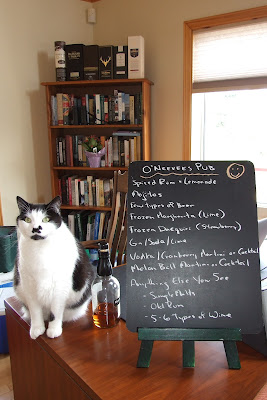 O'Neevee's Pub
Spiced Rum + Lemonade
Mojitos
Few Types of Beer
Frozen Margharita (Lime)
Frozen Daequiri (Strawberry)
Gin/Soda/Lime
Vodka/Cranberry Martini or Cocktail
Melon Ball Martini or Cocktail
Anything Else You See
- Single Malts
- Old Rum
- 5-6 Types of Wine